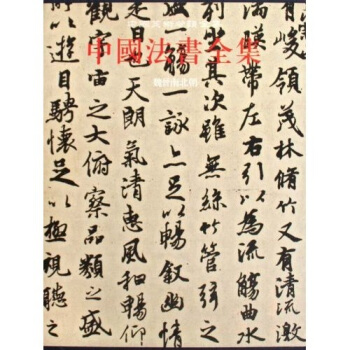 中國美術分類全集
中國法書全集
魏晉南北朝
有峻領茂林脩竹又有清流激
湍暎帶左右引以為流觴曲水
列坐其次雖無絲竹管弦之
盛一觴一詠亦足以暢敘幽情
是日也天朗氣清惠風和暢仰
觀宇宙之大俯察品類之盛
所以遊目騁懷足以極視聽之